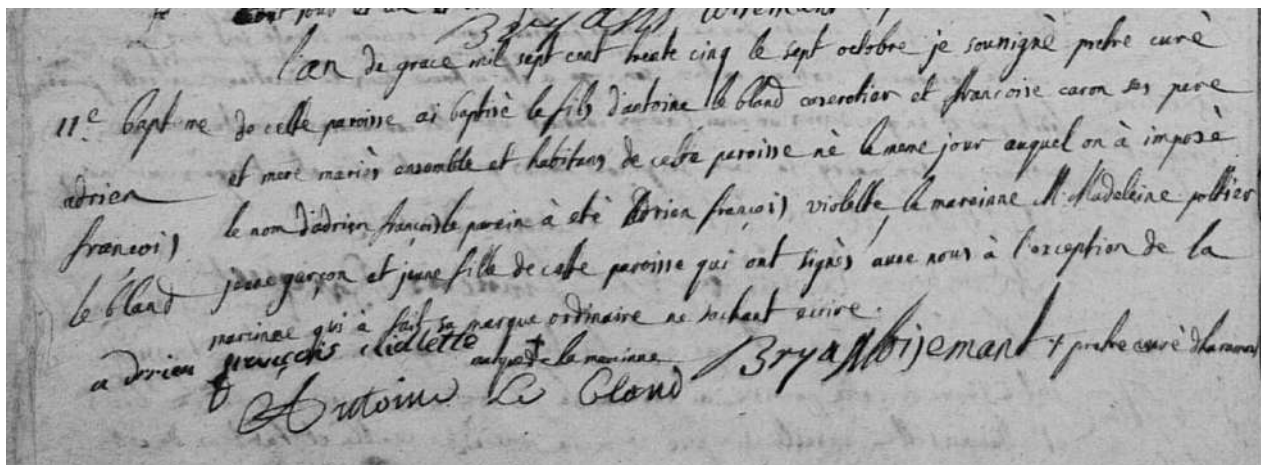 l'an de grace mil sept cent trente cinq le sept octobre je soussigné pretre curé
11e bapt me de cette paroisse ai baptisé le fils d'antoine le bland et francoise caron ses pere
adrien et mere mariés ensemble et habitans de cette paroisse né le meme jour auquel on à imposé
francois le nom d'adrien francois le parein à eté Adrien francois violette, la mareinne M. Madeleine poltier
le bland jeune garçon et jeune fille de cette paroisse qui ont signés avec nous à l'exception de la
mareinne qui à fait sa marque ordinaire ne sachant ecrire.
adrien francois violette marque de la mareinne Bryas Wisemant pretre curé
Antoine Le Bland